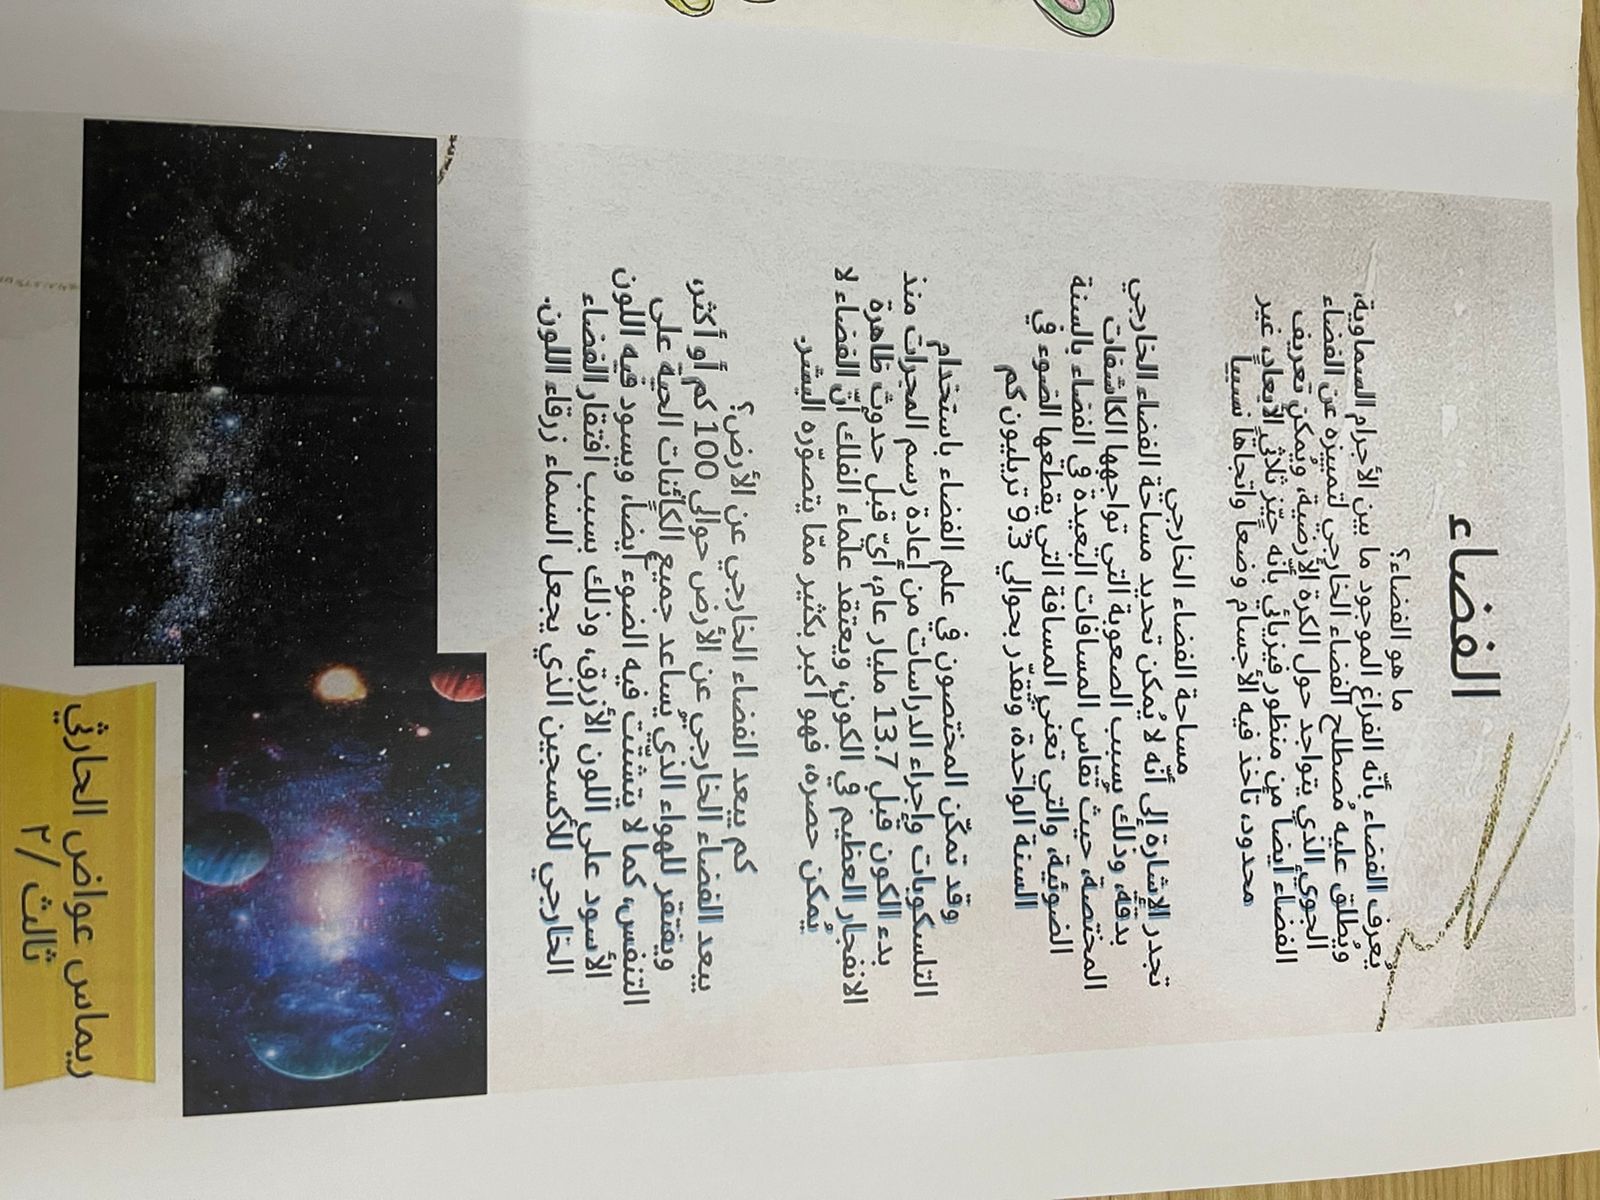 الفضاء
ما هو الفضاء؟
يُعرف الفضاء بأنّه الفراغ الموجود ما بين الأجرام السماوية،
ويُطلق عليه مُصطلح الفضاء الخارجي لتمييزه عن الفضاء
الجوي الذي يتواجد حول الكرة الأرضية، ويُمكن تعريف
الفضاء أيضاً من منظور فيزيائي بأنّه حيّز ثلاثي الأبعاد، غير
محدود، تأخذ فيه الأجسام وضعاً واتجاهاً نسبياً
مساحة الفضاء الخارجي
تجدر الإشارة إلى أنّه لا يُمكن تحديد مساحة الفضاء الخارجي
بدقة، وذلك بسبب الصعوبة التي تواجهها الكاشفات
المختصة، حيث تُقاس المسافات البعيدة في الفضاء بالسنة
الضوئية، والتي تعني المسافة التي يقطعها الضوء في
السنة الواحدة، وتقدّر بحوالي 9.3 تريليون كم
وقد تمكّن المختصون في علم الفضاء باستخدام
التلسكوبات وإجراء الدراسات من إعادة رسم المجرات منذ
بدء الكون قبل 13.7 مليار عام، أيّ قبل حدوث ظاهرة
الانفجار العظيم في الكون، ويعتقد علماء الفلك أنّ الفضاء لا
يُمكن حصره، فهو أكبر بكثير ممّا يتصوّره البشر.
كم يبعد الفضاء الخارجي عن الأرض؟
يبعد الفضاء الخارجي عن الأرض حوالي 100 كم أو أكثر،
ويفتقر للهواء الذي يساعد جميع الكائنات الحية على
التنفس، كما لا يتشتّت فيه الضوء أيضاً، ويسود فيه اللون
الأسود على اللون الأزرق، وذلك بسبب افتقار الفضاء
الخارجي للأكسجين الذي يجعل السماء زرقاء اللون.
ريماس عواض الحارثي
ثالث /٢